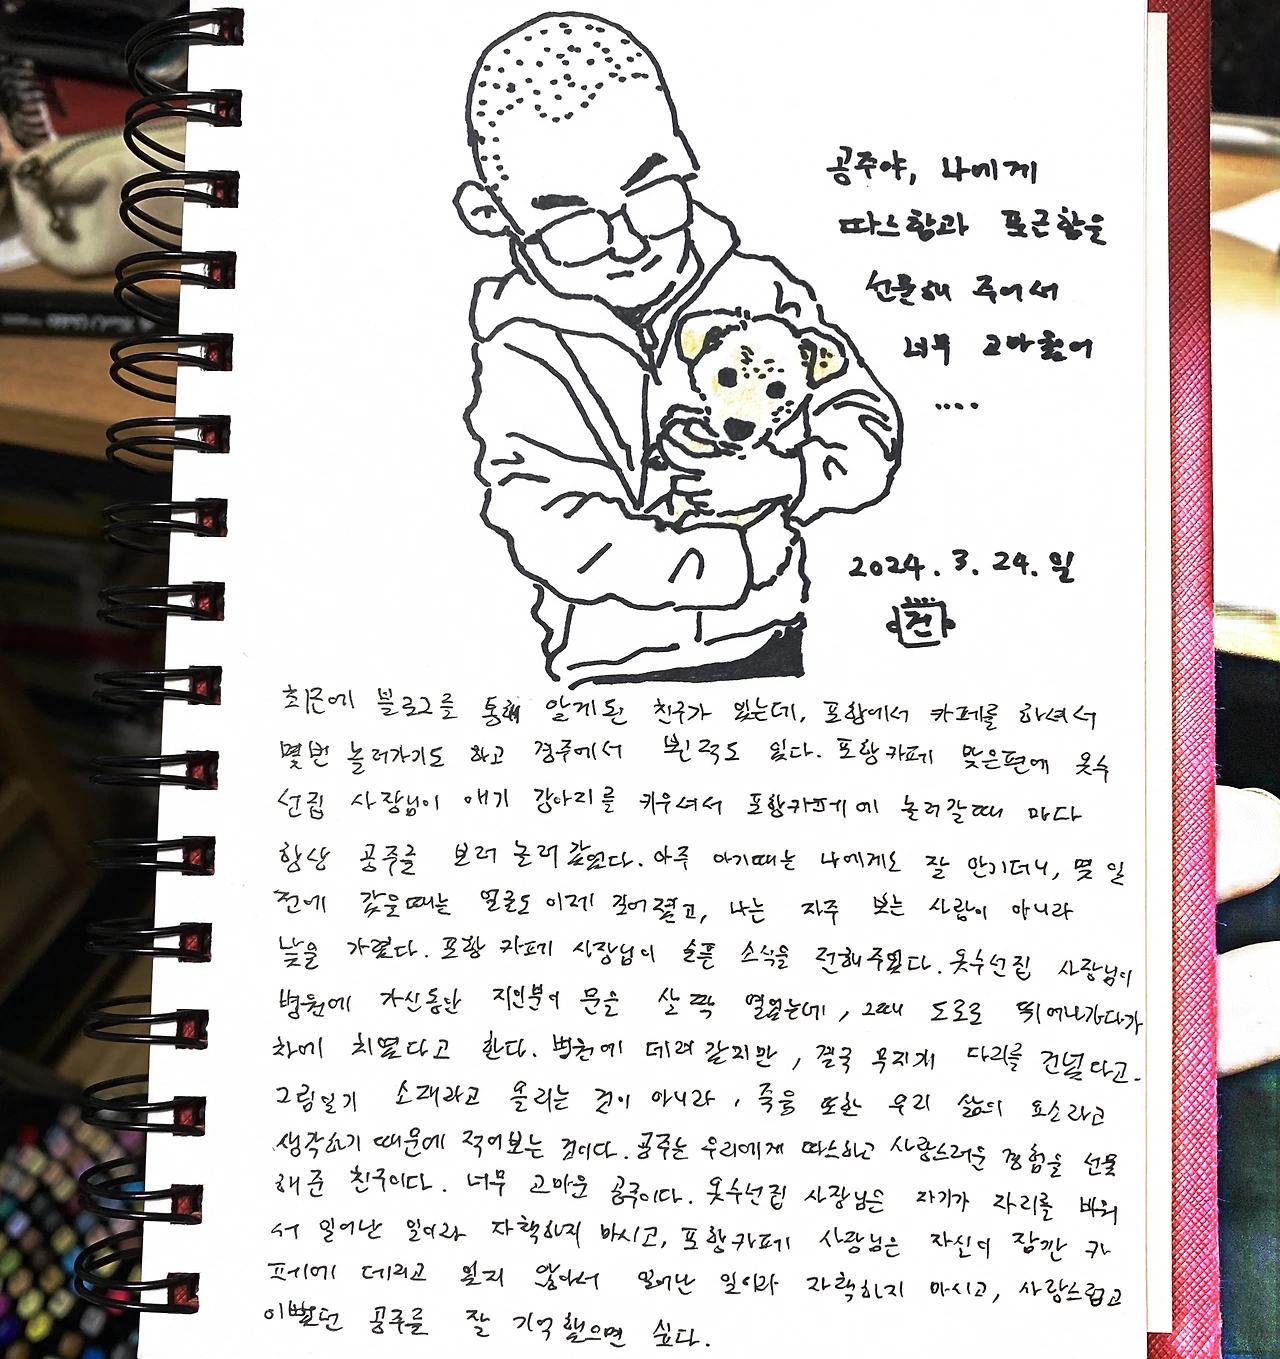 공주야, 나에게
따스함과 포근함을
선물해 주어서
너무 고마웠어
....
2024. 3. 24. 일
건
최근에 블로그를 통해 알게된 친구가 있는데, 포항에서 카페를 하셔서
몇번 놀러가기도 하고 경주에서 뵌적도 있다. 포항카페 맞은편에 옷수
선집 사장님이 애기 강아지를 키우셔서 포항카페에 놀러갈때 마다
항상 공주를 보러 놀러갔었다. 아주 아기때는 나에게도 잘 안기더니, 몇 일
전에 갔을때는 얼굴도 이제 길어졌고, 나는 자주 보는 사람이 아니라
낯을 가렸다. 포항 카페 사장님이 슬픈 소식을 전해주었다. 옷수선집 사장님이
병원에 가신동안 지인분이 문을 살짝 열었는데, 그때 도로로 뛰어나가다가
차에 치였다고 한다. 병원에 데려갔지만, 결국 무지개 다리를 건넜다고.
그림일기 소재라고 올리는 것이 아니라, 죽음 또한 우리 삶의 요소라고
생각하기 때문에 적어보는 것이다. 공주는 우리에게 따스하고 사랑스러운 경험을 선물
해 준 친구이다. 너무 고마운 공주이다. 옷수선집 사장님은 자기가 자리를 비워
서 일어난 일이라 자책하지 마시고, 포항카페 사장님은 자신이 잠깐 카
페에 데리고 있지 않아서 일어난 일이라 자책하지 마시고, 사랑스럽고
이뻤던 공주를 잘 기억했으면 싶다.